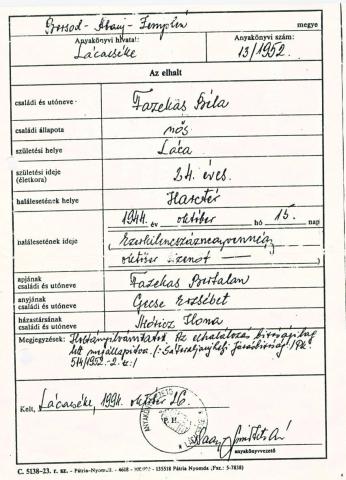 Borsod-Abauj-Zemplén megye
Anyakönyvi hivatal: Anyakönyvi szám:
Lácacséke 13/1952.
Az elhalt
családi és utóneve Fazekas Béla
családi állapota nős
születési helye Láca
születési ideje
(életkora) 24. éves.
halálesetének helye Harctér
1944. év október hó 15. nap
halálesetének ideje (Ezerkilencszáznegyvennégy
október tizenöt —)
apjának
családi és utóneve Fazekas Bertalan
anyjának
családi és utóneve Gecse Erzsébet
házastársának
családi és utóneve Móricz Ilona
Megjegyzések: Holtányilvánitatok. Az elhalálozás biróságilag
lett megállapitva. (: Sátoraljaújhelyi Járásbiróság: Pk.
514/1952.-2. sz:)
Kelt, Lácacséke, 1994. október 26.
ANYAKÖNYVVEZETŐ
P. H.
Nagy
anyakönyvvezető
C. 5138-23. r. sz. - Pátria-Nyomda - 4618 - 135518 Pátria Nyomda (Fsz.: 5-7838)